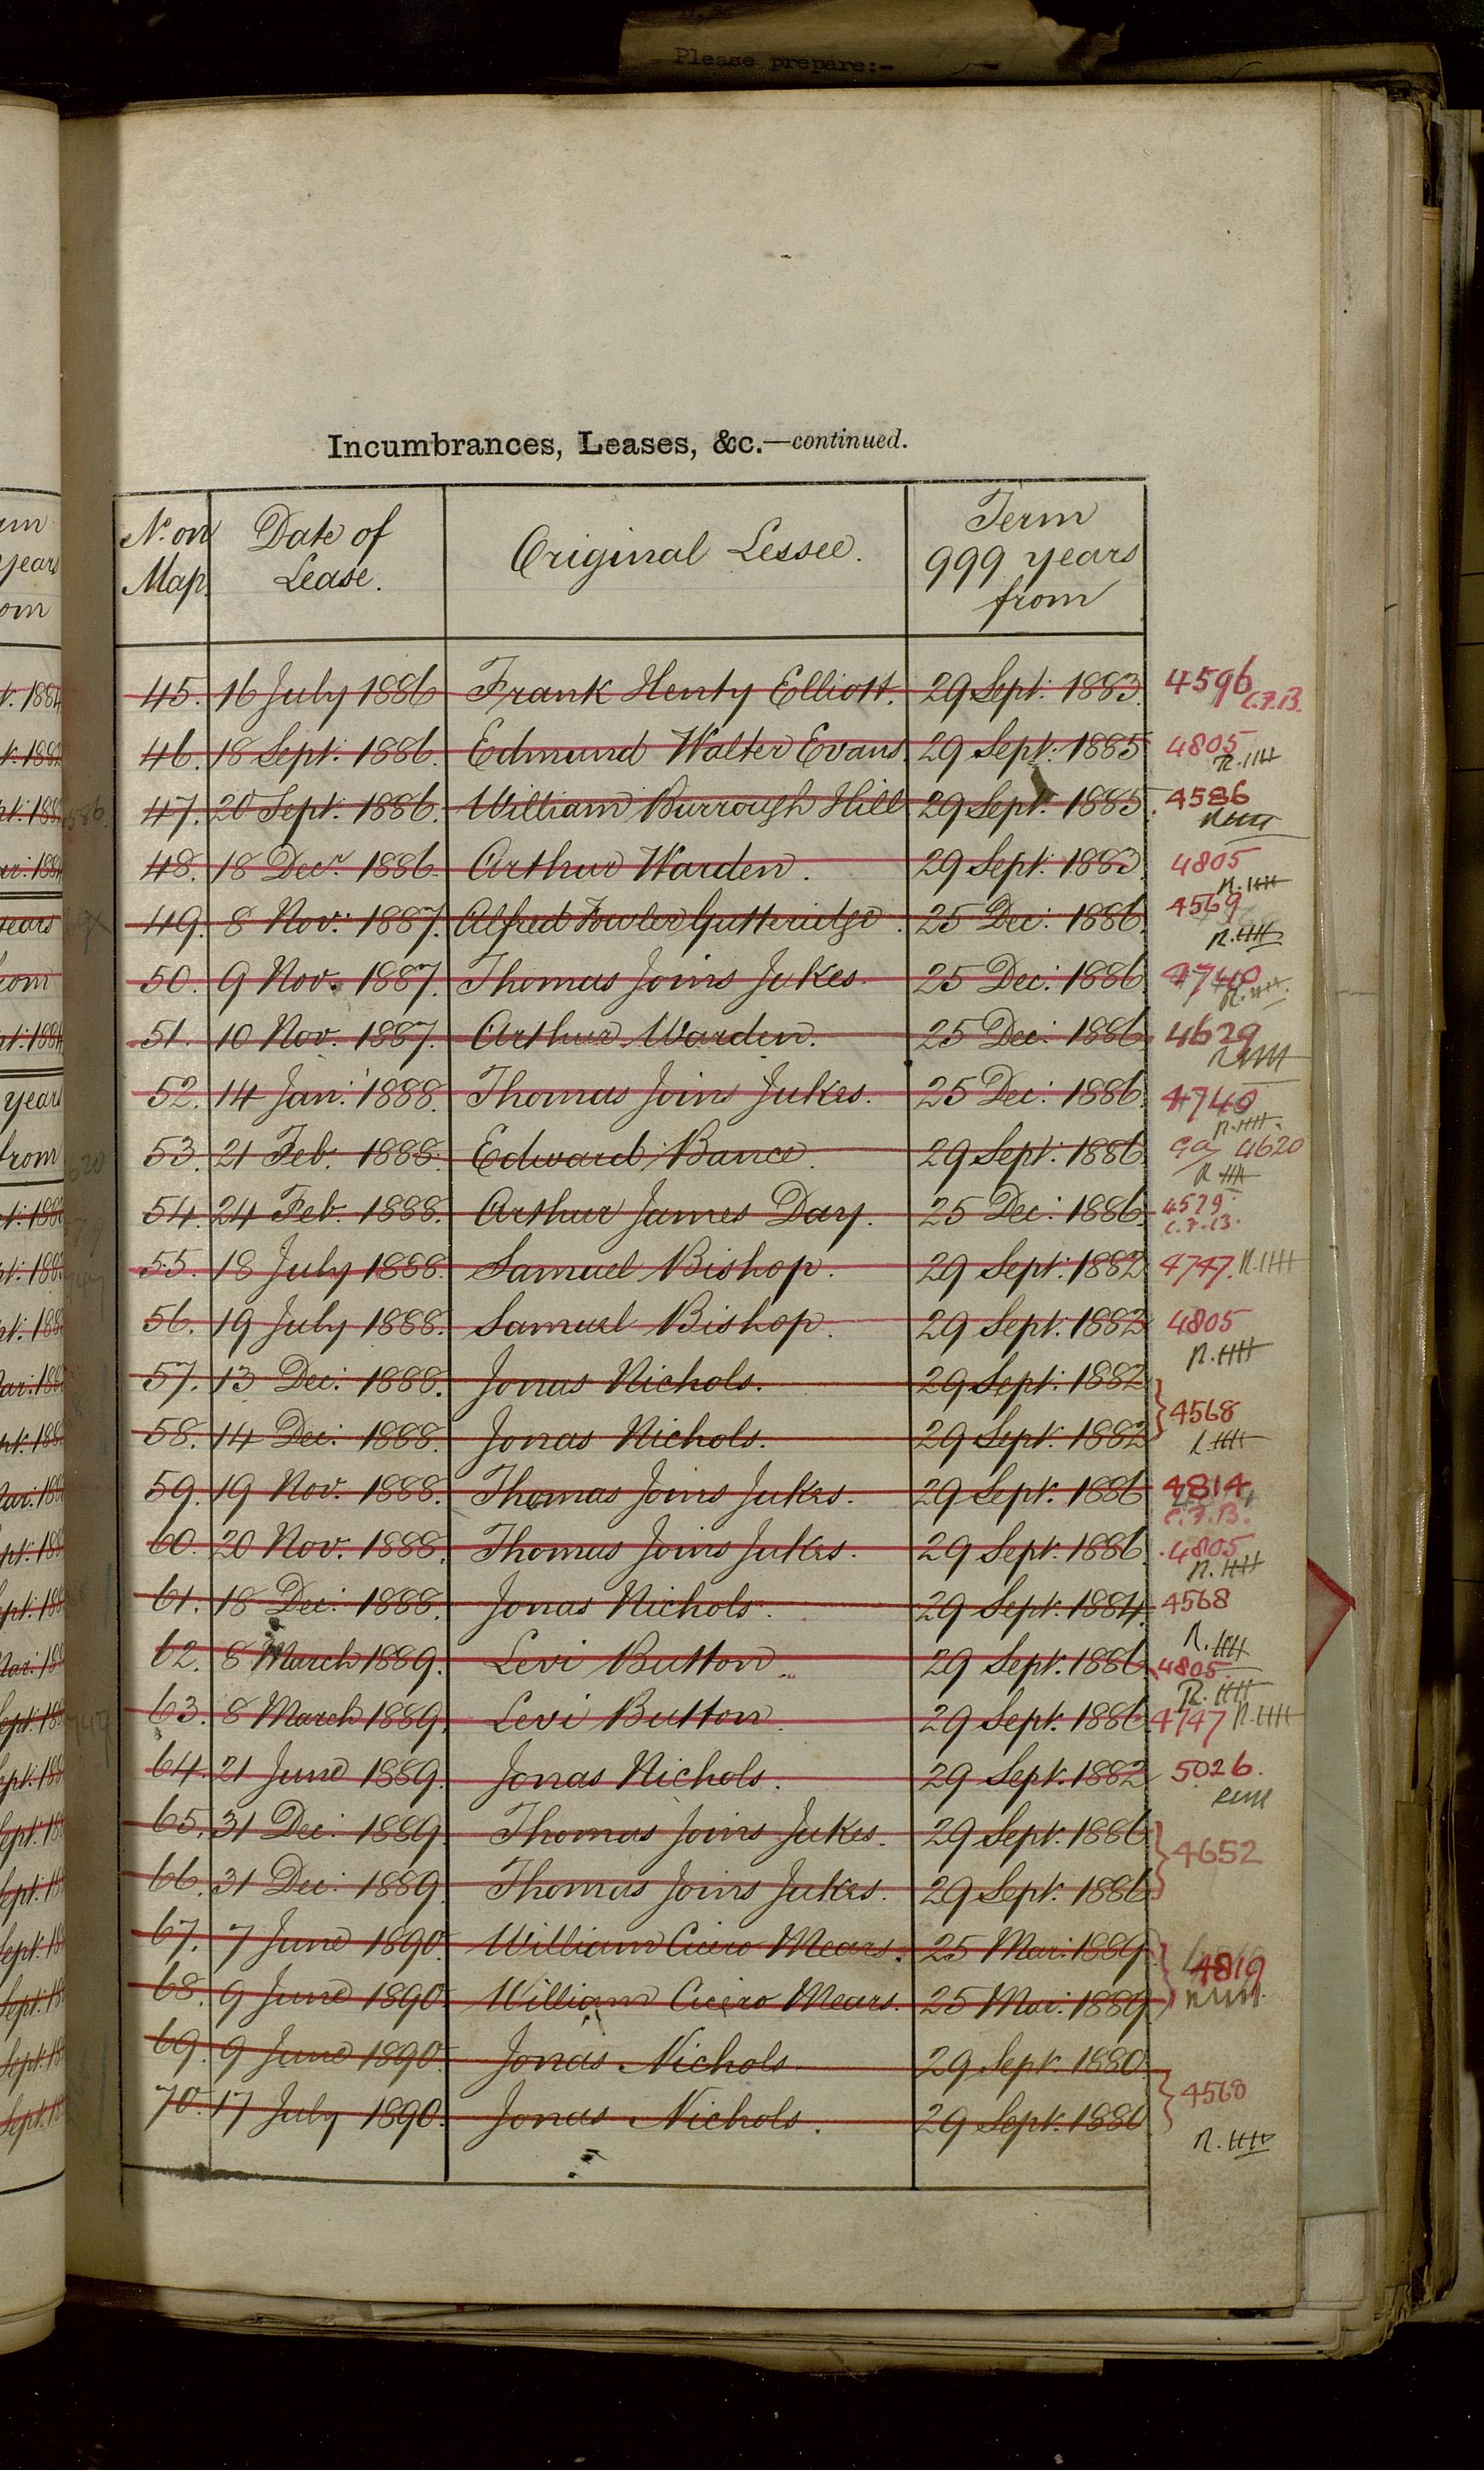 Please prepare:-
Incumbrances, Leases, &c.—continued.
No. on Map. Date of Lease. Original Lessee. Term 999 years from
45. 16 July 1886 Frank Henty Elliott. 29 Sept: 1883. 4596 C.F.B.
46. 18 Sept: 1886. Edmund Walter Evans. 29 Sept: 1885 4805
47. 20 Sept: 1886. William Burrough Hill 29 Sept: 1885. 4586
48. 18 Decr. 1886. Arthur Warden. 29 Sept: 1883. 4805
49. 8 Nov: 1887. Alfred Fowler Gutteridge. 25 Dec: 1886. 4569
50. 9 Nov. 1887. Thomas Joins Jukes. 25 Dec: 1886. 4740
51. 10 Nov. 1887. Arthur Warden. 25 Dec: 1886. 4629
52. 14 Jan: 1888. Thomas Joins Jukes. 25 Dec: 1886. 4740
53. 21 Feb. 1888. Edward Bance. 29 Sept: 1886. 4620
54. 24 Feb. 1888. Arthur James Day. 25 Dec: 1886. 4579 C.F.B.
55. 18 July 1888. Samuel Bishop. 29 Sept: 1882 4747.
56. 19 July 1888. Samuel Bishop. 29 Sept: 1882 4805
57. 13 Dec: 1888. Jonas Nichols. 29 Sept: 1882
58. 14 Dec: 1888. Jonas Nichols. 29 Sept: 1882 4568
59. 19 Nov. 1888. Thomas Joins Jukes. 29 Sept. 1886 4814 C.F.B.
60. 20 Nov. 1888. Thomas Joins Jukes. 29 Sept. 1886. 4805
61. 18 Dec: 1888. Jonas Nichols. 29 Sept. 1884. 4568
62. 8 March 1889. Levi Button. 29 Sept. 1886 4805.
63. 8 March 1889. Levi Button. 29 Sept. 1886 4747
64. 21 June 1889. Jonas Nichols. 29 Sept. 1882 5026.
65. 31 Dec: 1889. Thomas Joins Jukes. 29 Sept. 1886
66. 31 Dec: 1889. Thomas Joins Jukes. 29 Sept. 1886 4652
67. 7 June 1890. William Cicero Mears. 25 Mar: 1889.
68. 9 June 1890. William Cicero Mears. 25 Mar: 1889. 4819
69. 9 June 1890. Jonas Nichols. 29 Sept. 1880.
70. 17 July 1890. Jonas Nichols. 29 Sept. 1880 4568